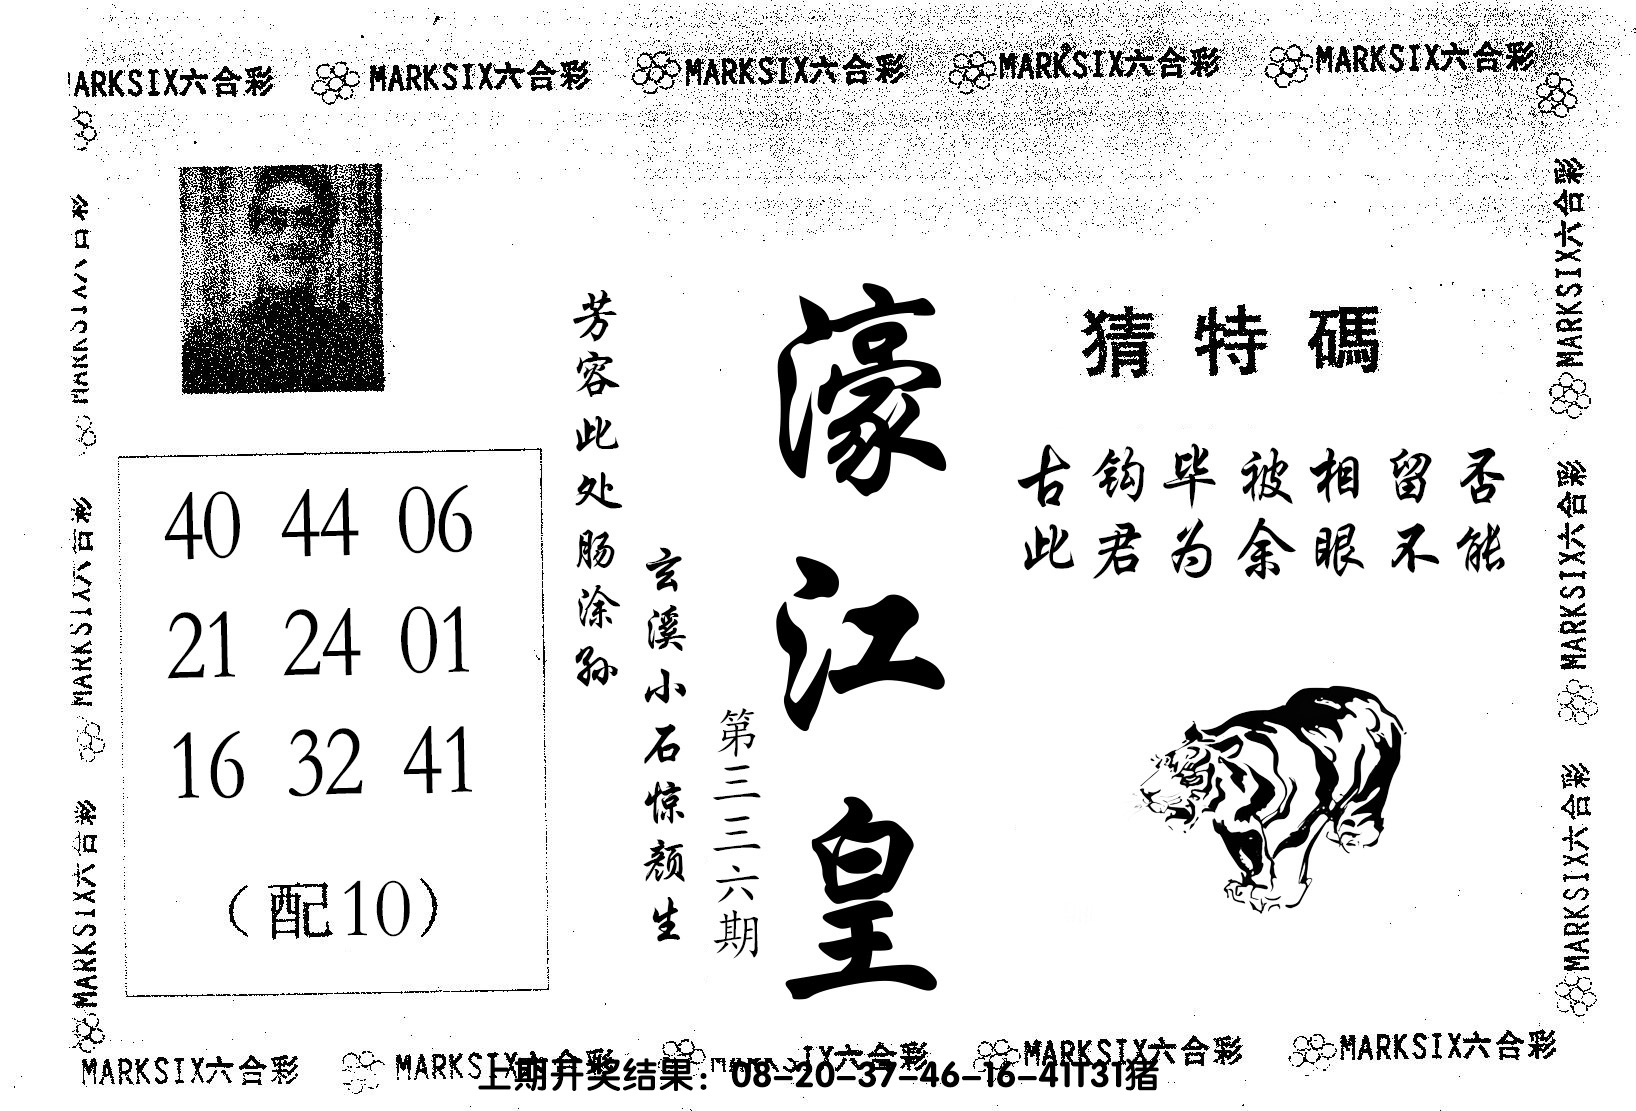 MARKSIX六合彩 MARKSIX六合彩 MARKSIX六合彩 MARKSIX六合彩 MARKSIX六合彩
MARKSIX六合彩
MARKSIX六合彩
MARKSIX六合彩
40 44 06
21 24 01
16 32 41
(配10)
芳容此处肠涂孙
玄溪小石惊颜生
第三三六期
濠江皇
猜特碼
古钩毕被相留否
此君为余眼不能
MARKSIX六合彩
MARKSIX六合彩
MARKSIX六合彩
MARKSIX六合彩 MARKSIX六合彩 IX六合彩 MARKSIX六合彩 MARKSIX六合彩
上期开奖结果：08-20-37-46-16-41T31猪